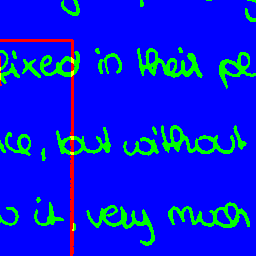 fixed in their pe
ce, but without
w it very much